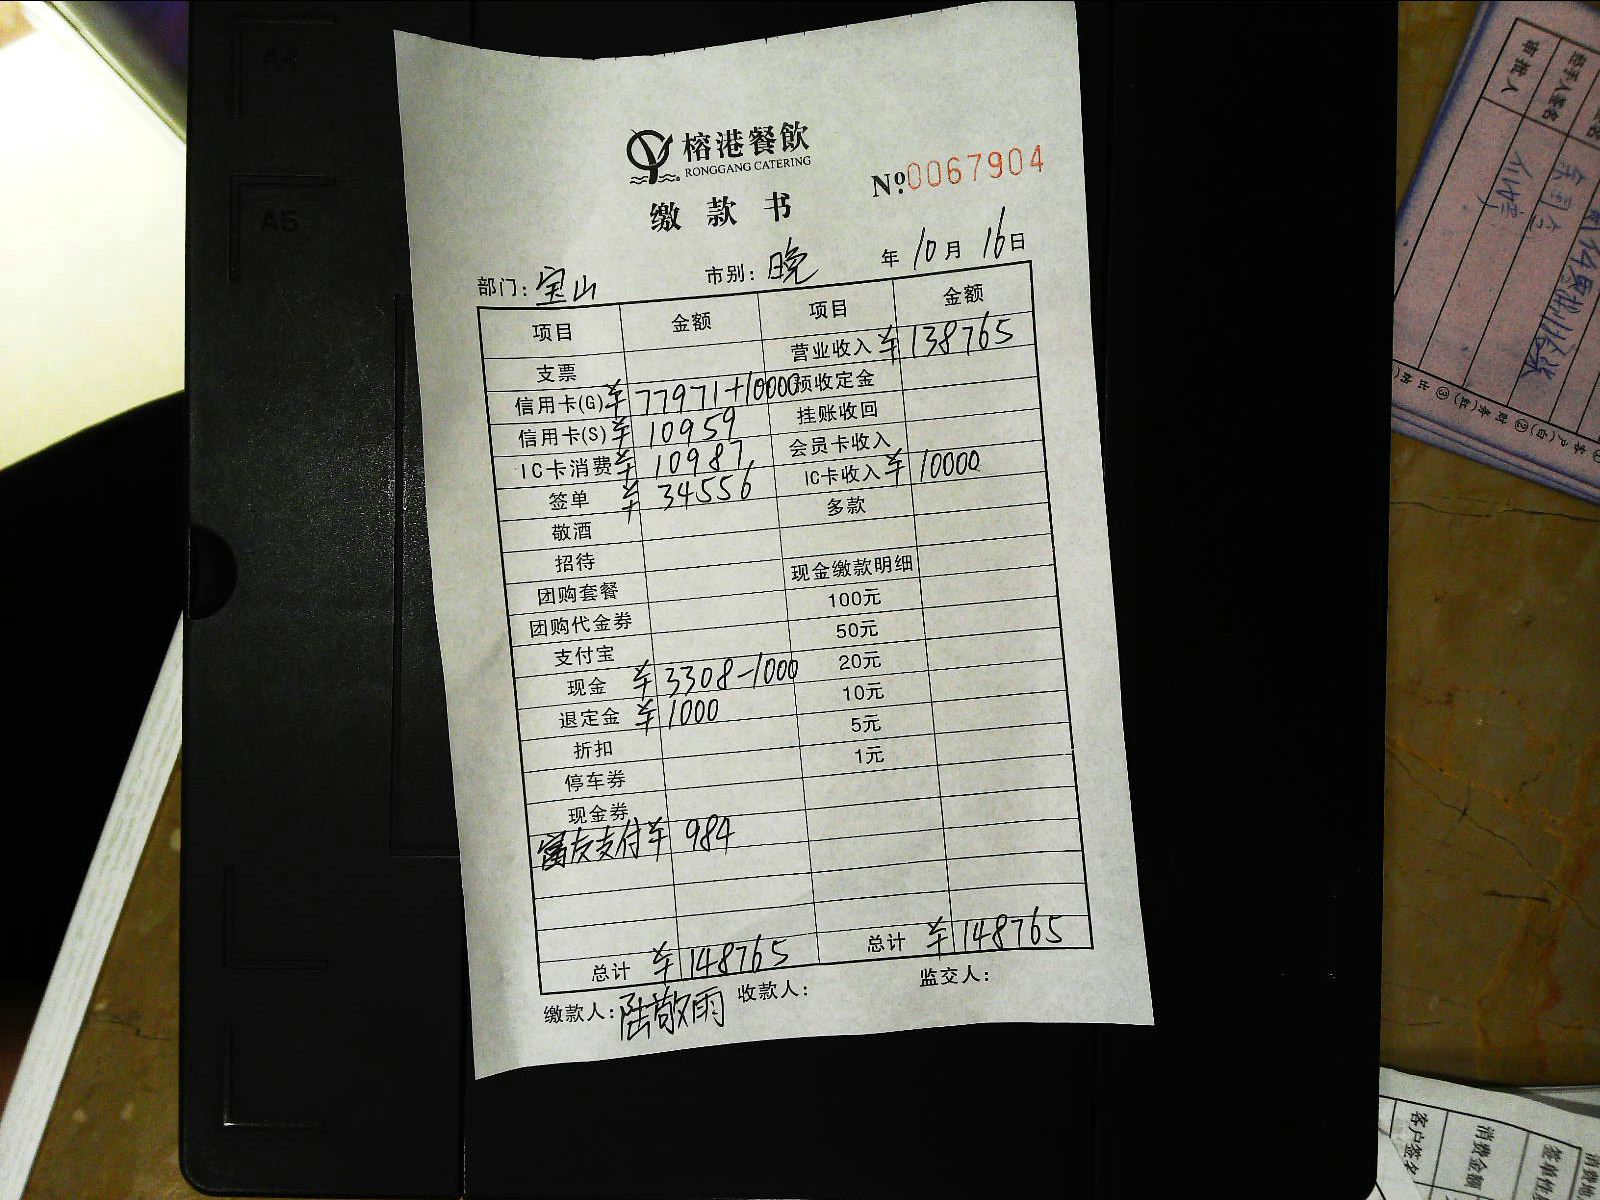 A4
A5
榕港餐飲
RONGGANG CATERING
No.0067904
缴款书
部门:宝山 市别:晚 年10月16日
项目 金额 项目 金额
支票 营业收入 ¥138765
信用卡(G) ¥77971+10000 预收定金
信用卡(S) ¥10959 挂账收回
IC卡消费 ¥10987 会员卡收入
签单 ¥34556 IC卡收入 ¥10000
敬酒 多款
招待
团购套餐 现金缴款明细
团购代金券 100元
支付宝 50元
现金 ¥3308-1000 20元
退定金 ¥1000 10元
折扣 5元
停车券 1元
现金券
富友支付 ¥984
总计 ¥148765 总计 ¥148765
缴款人:陆敬雨 收款人: 监交人:
审批人
经手人签名
客户签名
消费金额